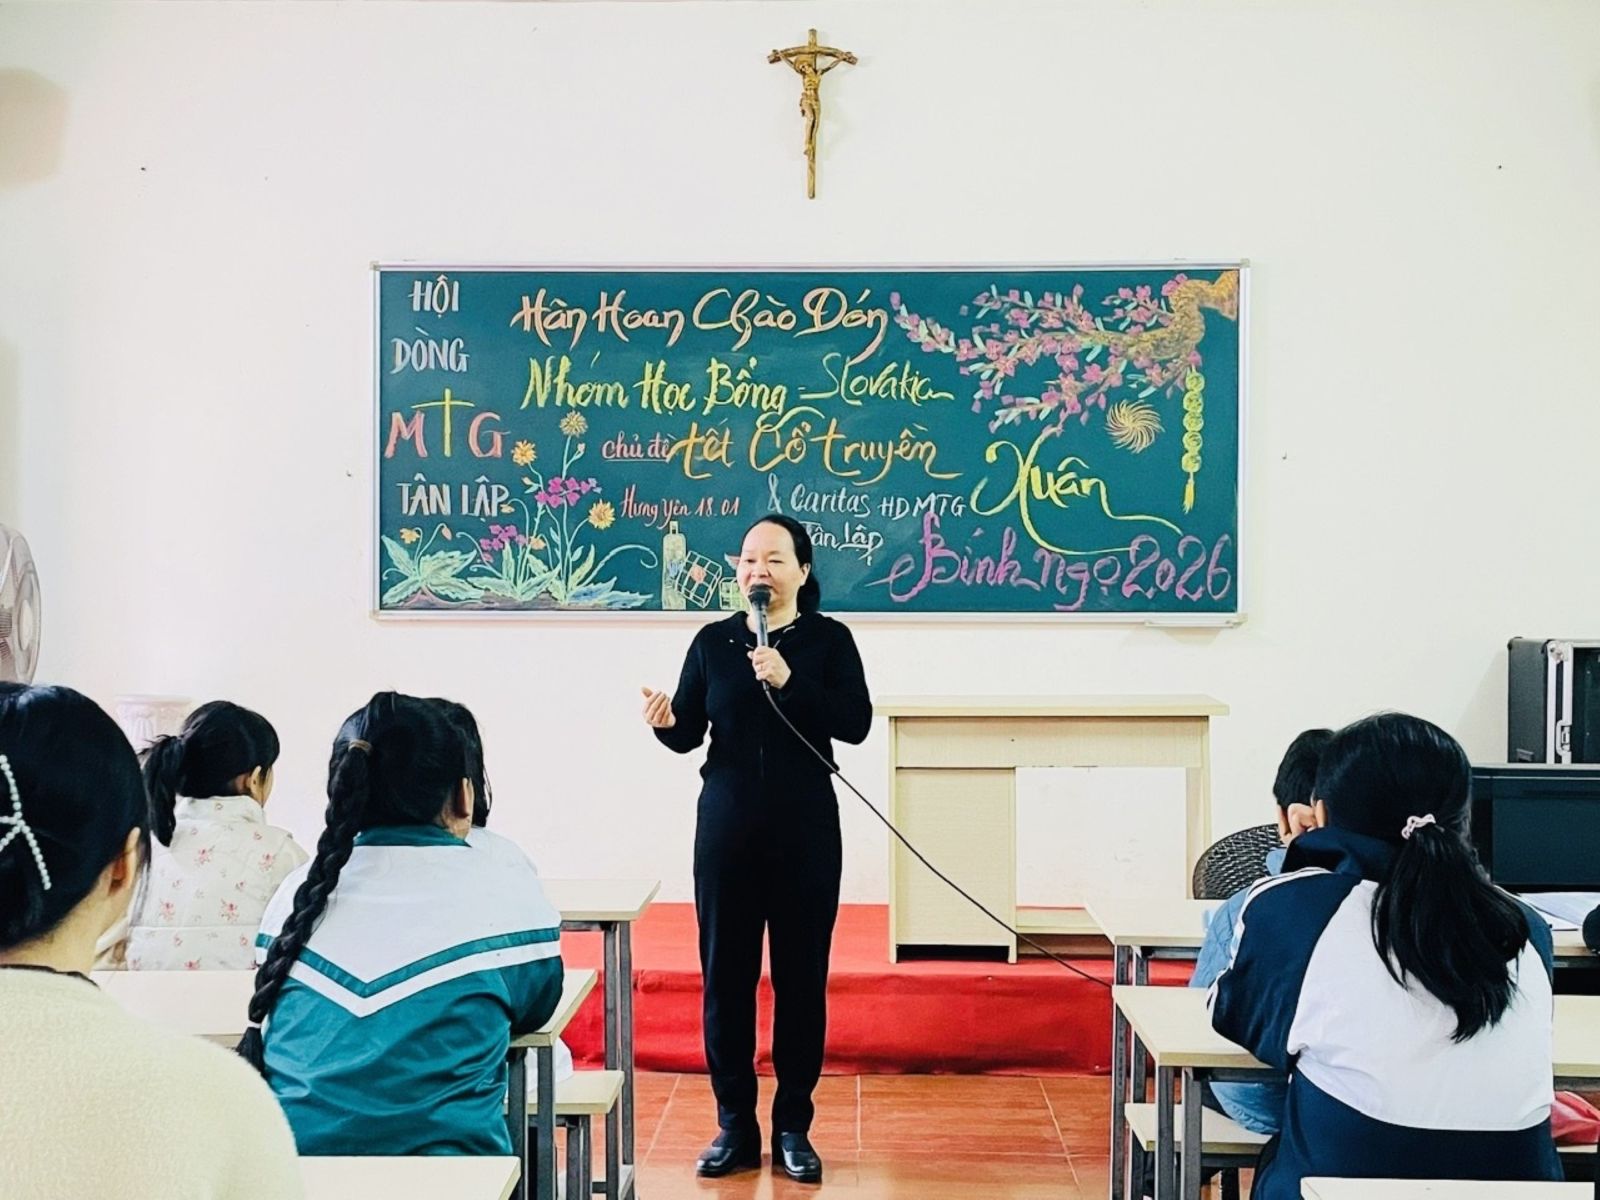 HỘI
DÒNG
MTG
TÂN LẬP
Hân Hoan Chào Đón
Nhóm Học Bổng - Slovakia
chủ đề tết Cổ truyền
Hưng Yên 18.01
& Caritas HD MTG
Tân Lập
Xuân
Bính Ngọ 2026